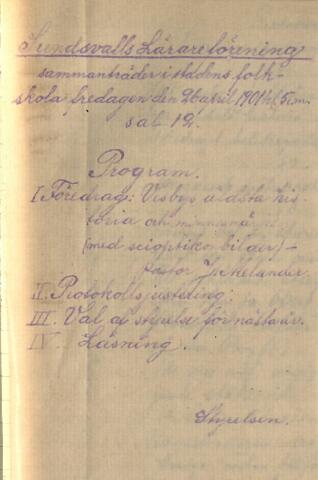 Sundsvalls Lärareförening
sammanträder i stadens folk-
skola fredagen den 26 april 1901 kl. 5 e.m.
sal 12.
Program.
I. Föredrag: Visbys äldsta his-
toria och minnesmärken
(med scioptikonbilder) -
II. Protokollsjustering.
III. Val af styrelse för nästa år.
IV. Läsning.
Styrelsen.